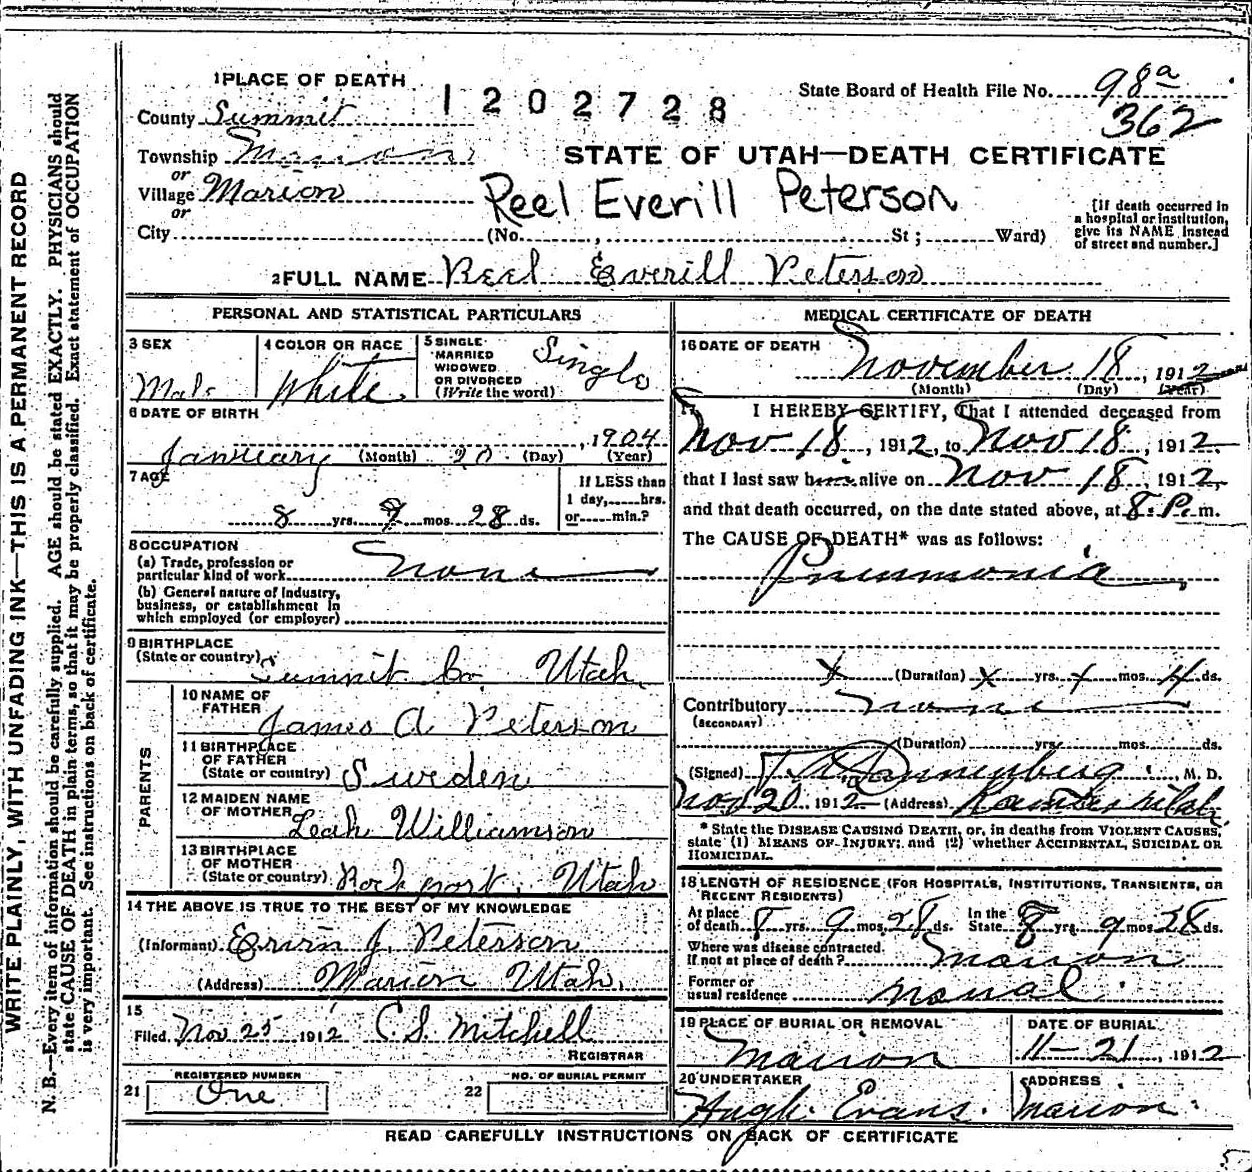 1 PLACE OF DEATH
1202728
State Board of Health File No. 98a
362
County Summit
Township Marion
or
Village Marion
or
City (No. , St ; Ward)
STATE OF UTAH—DEATH CERTIFICATE
Reel Everill Peterson
[If death occurred in
a hospital or institution,
give its NAME instead
of street and number.]
2 FULL NAME Reel Everill Peterson
PERSONAL AND STATISTICAL PARTICULARS
3 SEX
Male
4 COLOR OR RACE
White
5 SINGLE
MARRIED
WIDOWED
OR DIVORCED
(Write the word)
Single
6 DATE OF BIRTH
January 20 , 1904
(Month) (Day) (Year)
7 AGE
8 yrs. 9 mos. 28 ds.
If LESS than
1 day, hrs.
or min.?
8 OCCUPATION
(a) Trade, profession or
particular kind of work None
(b) General nature of industry,
business, or establishment in
which employed (or employer)
9 BIRTHPLACE
(State or country) Summit Co Utah
PARENTS
10 NAME OF
FATHER
James A Peterson
11 BIRTHPLACE
OF FATHER
(State or country) Sweden
12 MAIDEN NAME
OF MOTHER
Leah Williamson
13 BIRTHPLACE
OF MOTHER
(State or country) Rockport, Utah
14 THE ABOVE IS TRUE TO THE BEST OF MY KNOWLEDGE
(Informant) Ervin J. Peterson
(Address) Marion Utah.
15
Filed Nov 25 1912 C. S. Mitchell
REGISTRAR
REGISTERED NUMBER
21 One
NO. OF BURIAL PERMIT
22
MEDICAL CERTIFICATE OF DEATH
16 DATE OF DEATH
November 18, 1912
(Month) (Day) (Year)
17 I HEREBY CERTIFY, That I attended deceased from
Nov 18, 1912, to Nov 18, 1912
that I last saw him alive on Nov 18, 1912,
and that death occurred, on the date stated above, at 8. P. m.
The CAUSE OF DEATH* was as follows:
Pneumonia
x (Duration) x yrs. x mos. 4 ds.
Contributory None
(SECONDARY)
(Duration) yrs. mos. ds.
(Signed) Dannenberg, M. D.
Nov 20 1912 (Address) Kamas Utah
* State the DISEASE CAUSING DEATH, or, in deaths from VIOLENT CAUSES,
state (1) MEANS OF INJURY; and (2) whether ACCIDENTAL, SUICIDAL OR
HOMICIDAL.
18 LENGTH OF RESIDENCE (FOR HOSPITALS, INSTITUTIONS, TRANSIENTS, OR
RECENT RESIDENTS)
At place
of death 8 yrs. 9 mos. 28 ds. In the
State 8 yrs. 9 mos. 28 ds.
Where was disease contracted.
If not at place of death? Marion
Former or
usual residence
19 PLACE OF BURIAL OR REMOVAL
Marion
DATE OF BURIAL
11-21, 1912
20 UNDERTAKER
Hugh Evans.
ADDRESS
Marion.
READ CAREFULLY INSTRUCTIONS ON BACK OF CERTIFICATE
5
WRITE PLAINLY, WITH UNFADING INK—THIS IS A PERMANENT RECORD
N. B.—Every item of information should be carefully supplied. AGE should be stated EXACTLY. PHYSICIANS should
state CAUSE OF DEATH in plain terms, so that it may be properly classified. Exact statement of OCCUPATION
is very important. See instructions on back of certificate.